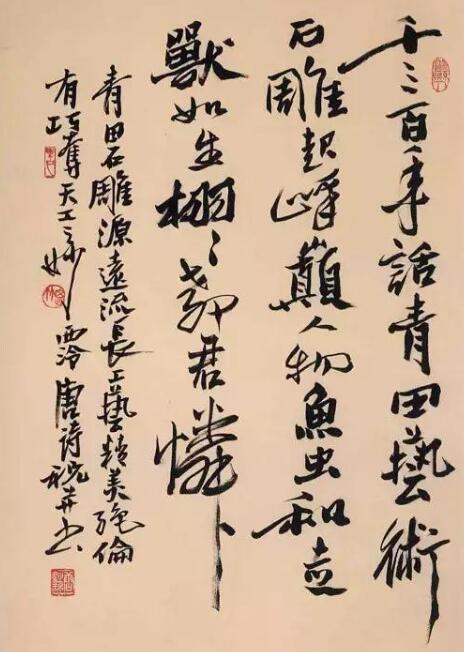 千三百年話青田藝術
石雕起峰巔人物魚虫和走
獸如生栩々君憐
青田石雕源遠流長工藝精美絕倫
有巧奪天工之妙西泠唐詩祝并書